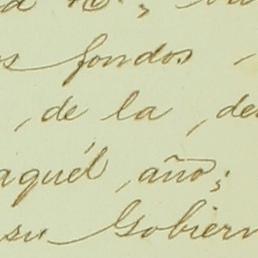 fondos,
, de la, de
aquél, año;
su Gobiern